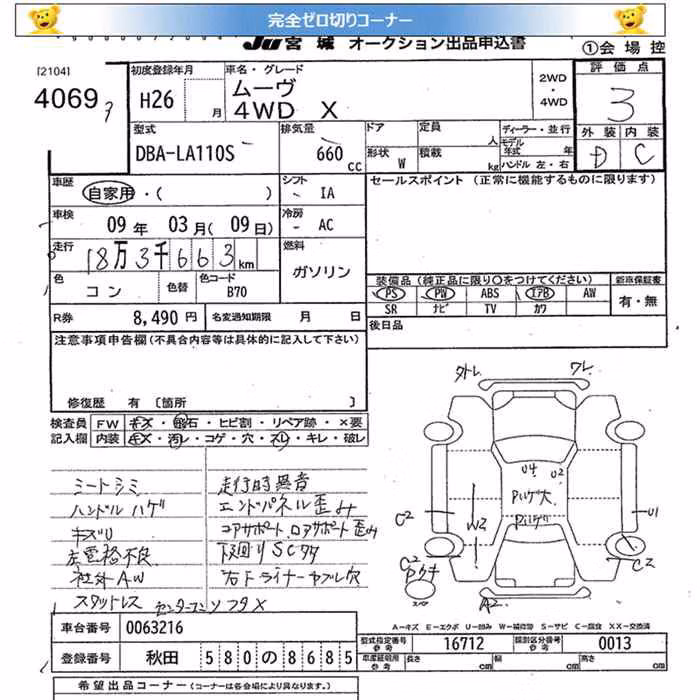 完全ゼロ切りコーナー
JU 宮城 オークション出品申込書
①会場控
[2104]
4069
初度登録年月
H26 月
車名・グレード
ムーヴ
4WD X
2WD
・
4WD
評価点
3
外装 内装
D C
型式
DBA-LA110S
排気量
660 cc
ドア 定員 人
形状 W 積載 kg
ディーラー・並行
モデル年式 年
ハンドル 左・右
車歴
自家用・( )
シフト
IA
車検
09年 03月(09日)
冷房
AC
走行
18万3千663km
燃料
ガソリン
色
コン
色替
色コード
B70
R券 8,490円
名変通知期限 月 日
セールスポイント (正常に機能するものに限ります)
装備品 (純正品に限り〇をつけてください)
新車保証書
PS PW ABS エアB AW
SR ナビ TV カワ
有・無
後日品
注意事項申告欄(不具合内容等は具体的に記入して下さい)
修復歴 有 [箇所 ]
検査員 FW キズ・飛石・ヒビ割・リペア跡・×要
記入欄 内装 キズ・汚レ・コゲ・穴・スレ・キレ・破レ
シートシミ
ハンドルハゲ
キズU
左電格不良
社外AW
スタットレス
走行時異音
エンドパネル歪み
コアサポート、ロアサポート歪み
下廻りSCサ
右Fライナーヤブレ穴
外レ ワレ
U4 U2
Pハゲ大
Pハゲ
C2 W2 U1
C2
C2
A2
スペア
車台番号 0063216
登録番号 秋田 580の8685
A－キズ E－エクボ U－凹み W－補修跡 S－サビ C－腐食 XX－交換済
型式指定番号 参考 16712
類別区分番号 参考 0013
車庫証明用 参考 長さ cm 幅 cm 高さ cm
希望出品コーナー (コーナーは各会場により異なります。)